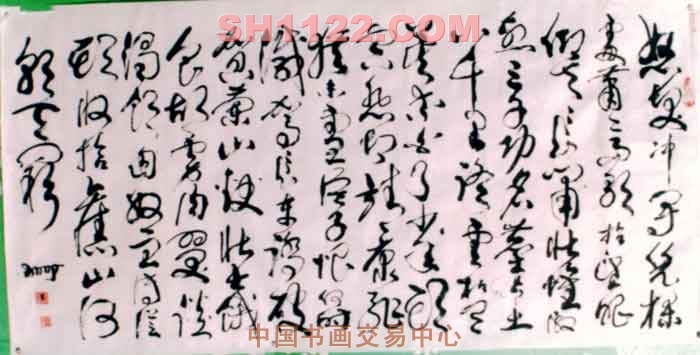 SH1122.COM
怒髮冲冠凭栏
处萧萧雨歇抬望眼
仰天长啸壮怀激
烈三十功名尘与土
八千里路云和月
莫等闲白了少年头
空悲切靖康耻
犹未雪臣子恨何时
灭驾长车踏破
贺兰山缺壮志饥
餐胡虏肉笑谈
渴饮匈奴血待从
头收拾旧山河
朝天阙
中国书画交易中心